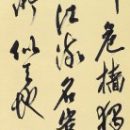 危檣獨
江流名豈
所似天地